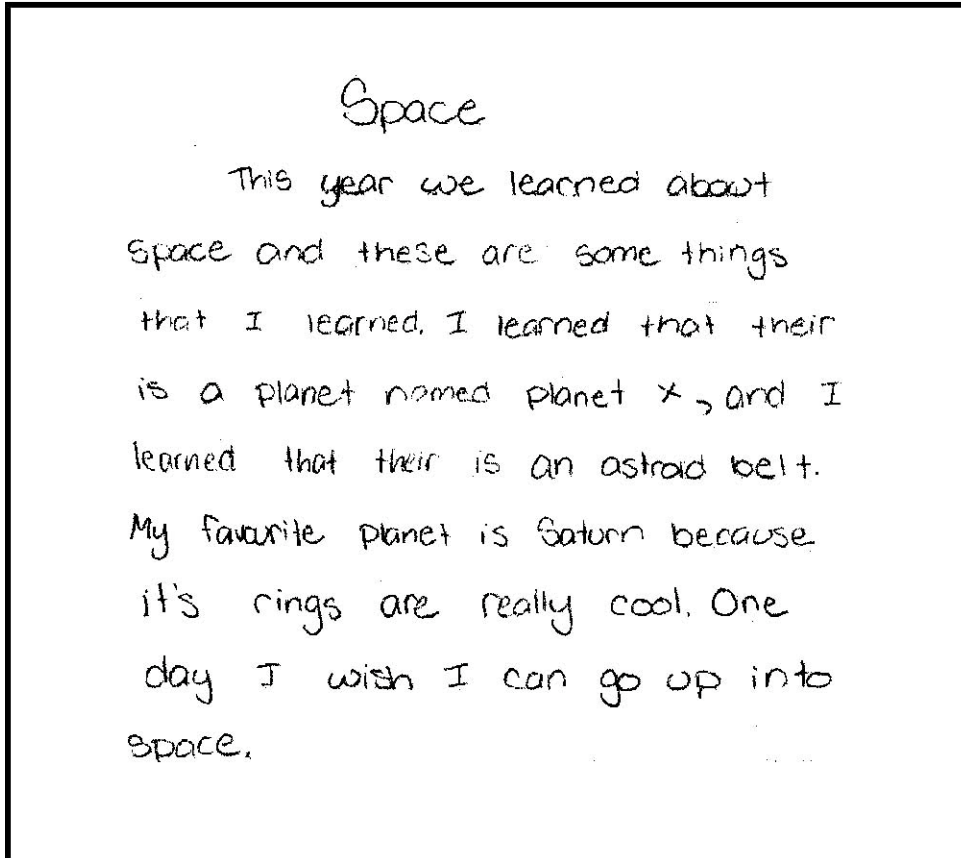 Space
This year we learned about
space and these are some things
that I learned. I learned that their
is a planet named planet x, and I
learned that their is an astroid belt.
My favourite planet is Saturn because
it's rings are really cool. One
day I wish I can go up into
space.